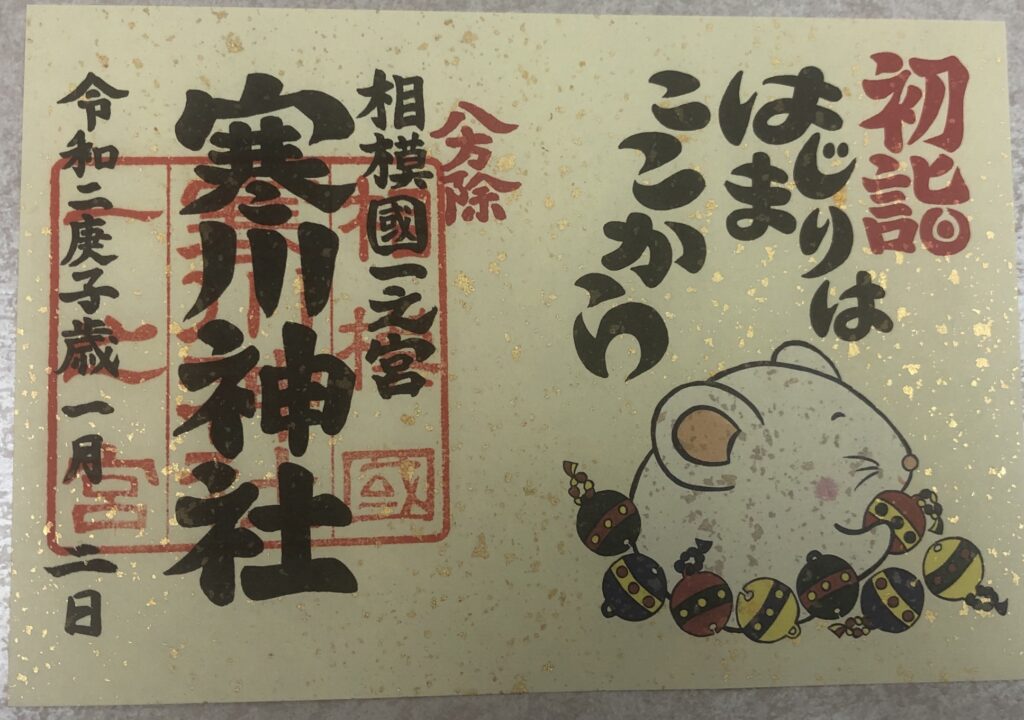 初詣
はじまりは
ここから
八方除
相模國一之宮
寒川神社
令和二庚子歳 一月 二日
相模國
寒川神社
一之宮